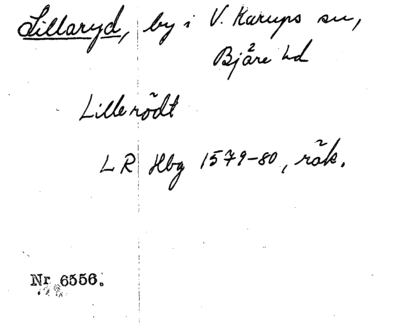 Lillaryd, by i V. Karups sn,
Bjäre hd
Lillerödt
LR Hbg 1579-80, räk.
Nr 6556.